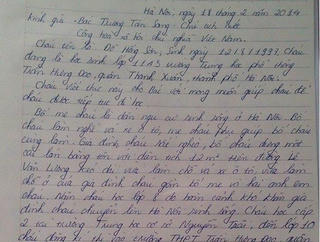 Hà Nội, ngày 18 tháng 2 năm 2014
Kính gửi - Bác Trương Tấn Sang - Chủ tịch nước
Cộng hòa xã hội chủ nghĩa Việt Nam.
Cháu tên là Đỗ Hồng Sơn, Sinh ngày 1997. Cháu
đang là học sinh lớp 11A3 trường Trung học phổ thông
Trần Hưng Đạo, quận Thanh Xuân, thành phố Hà Nội.
Cháu viết thư này cho Bác với mong muốn giúp cháu để
cháu được tiếp tục đi học.
Bố mẹ cháu là dân ngụ cư sinh sống ở Hà Nội. Bố
cháu làm nghề vá xe ô tô, mẹ cháu phụ giúp bố cháu
cùng làm. Gia đình cháu rất nghèo, bố cháu dựng một
cái lán bằng tôn với diện tích 12m² trên đường Lê
Văn Lương kéo dài vừa làm chỗ vá xe ô tô, vừa làm
chỗ ở của gia đình cháu gồm bố mẹ và hai anh em
cháu. Năm cháu học lớp 8 do hoàn cảnh khó khăn gia
đình cháu chuyển lên Hà Nội sinh sống. Cháu học cấp
2 tại trường Trung học cơ sở Nguyễn Trãi, đến lớp 10
cháu đăng kí thi vào trường THPT Trần Hưng Đạo, quận